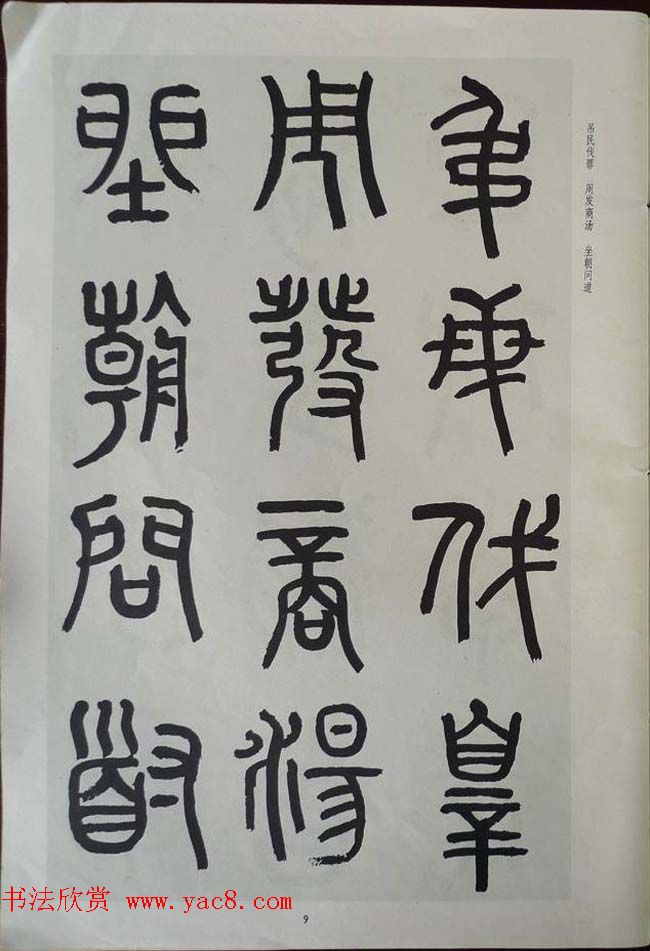 吊民伐罪 周发商汤 坐朝问道
弔民伐辠
周發商湯
坐朝問道
9
书法欣赏 www.yac8.com